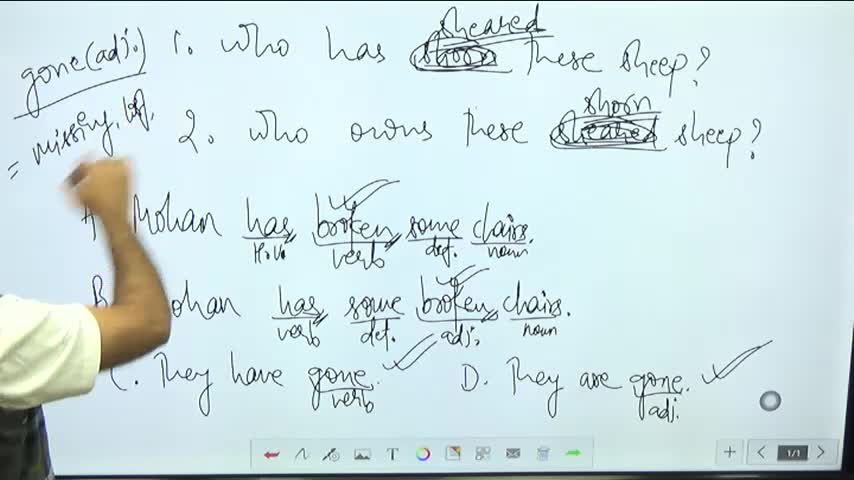 gone(adj.)
= missing, lost.
1. Who has sheared shorn these sheep?
2. Who owns these shorn sheared sheep?
A Mohan has broken some chairs.
H.V. verb det. noun
B Mohan has some broken chairs.
verb det. adj. noun
C. They have gone. D. They are gone.
verb adj.
T
1/1